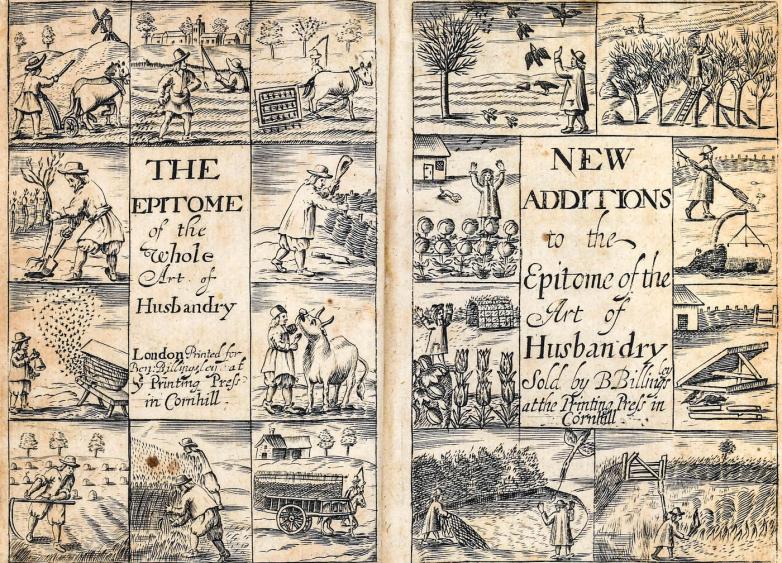 THE
EPITOME
of the
Whole
Art of
Husbandry
London Printed for
Ben: Billingsley at
ye Printing Press
in Cornhill
NEW
ADDITIONS
to the
Epitome of the
Art of
Husbandry
Sold by B Billingsley
at the Printing Press in
Cornhill